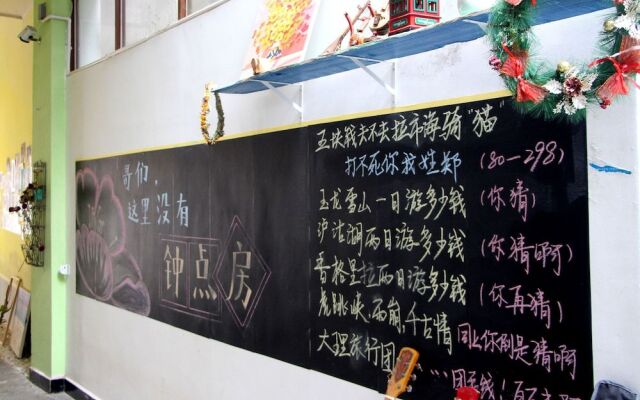 哥们，
这里没有
钟点房
五块钱去不去拉市海骑"猫"
打不死你我姓郑 (80-298)
玉龙雪山一日游多少钱 (你猜)
泸沽湖两日游多少钱 (你猜啊)
香格里拉两日游多少钱 (你再猜)
虎跳峡、雨崩、千古情 同上你倒是猜啊
大理旅行团